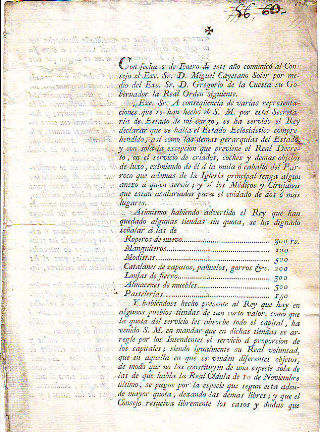 56, 60.
Con fecha 5 de Enero de este año comunicó al Con-
sejo el Exc. Sr. D. Miguel Cayetano Soler por me-
dio del Exc. Sr. D. Gregorio de la Cuesta su Go-
bernador la Real Orden siguiente.
„Exc. Sr. A conseqüencia de varias representa-
ciones que se han hecho á S. M. por esta Secreta-
ría de Estado de mi cargo, se ha servido el Rey
declarar que se halla el Estado Eclesiástico compre-
hendido, así como las demas gerarquías del Estado,
y sin otra excepcion que previene el Real Decre-
to, en el servicio de criados, coches y demas objetos
de luxo, eximiendo de él la mula ó caballo del Pár-
roco que ademas de la Iglesia principal tenga algun
anexo á quien servir; y á los Médicos y Cirujanos
que estan asalariados para el cuidado de dos ó mas
lugares.
Asimismo habiendo advertido el Rey que han
quedado algunas tiendas sin quota, se ha dignado
señalar á las de
Roperos de nuevo 300 rs.
Manguiteros 200
Modistas 500
Catalanes de zapatos, pañuelos, gorros &c. 200
Lonjas de fierro 300
Almacenes de muebles 300
Pastelerías 150
Y habiéndose hecho presente al Rey que hay en
algunos pueblos tiendas de tan corto valor, como que
la quota del servicio les absorbe todo el capital, ha
venido S. M. en mandar que en dichas tiendas se ar-
regle por los Intendentes el servicio á proporcion de
los capitales; siendo igualmente su Real voluntad,
que en aquella en que se vendan diferentes objetos,
de modo que no las constituyen de una especie sola de
las de que habla la Real Cédula de 10 de Noviembre
último, se pague por la especie que segun esta adeu-
de mayor quota, dexando las demas libres; y que el
Consejo resuelva libremente los casos y dudas que